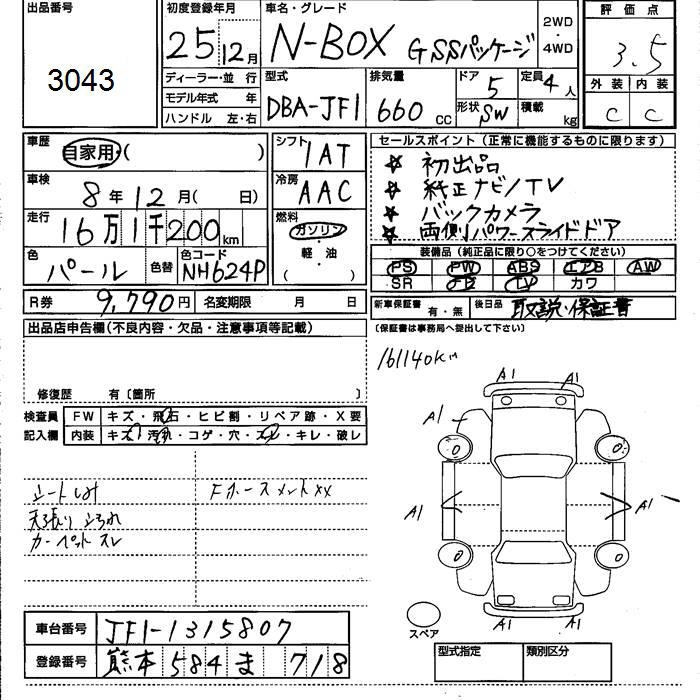 出品番号
3043
初度登録年月
25 12月
車名・グレード
N-BOX G SSパッケージ
2WD
・
4WD
評価点
3.5
外装 内装
C C
ディーラー・並行
モデル年式 年
ハンドル 左・右
型式
DBA-JF1
排気量
660 cc
ドア
5
形状 SW
定員 4人
積載 kg
車歴
自家用・( )
車検
8年12月( 日)
走行
16万1千200km
色
パール
色替
色コード
NH624P
シフト
IAT
冷房
AAC
燃料
ガソリン
・
軽・油
( )
セールスポイント(正常に機能するものに限ります)
☆ 初出品
☆ 純正ナビ/TV
☆ バックカメラ
☆ 両側パワースライドドア
装備品(純正品に限り○をつけてください)
PS PW ABS エアB AW
SR ナビ TV カワ
R券 9,790円 名変期限 月 日
新車保証書 有・無
後日品 取説・保証書
(保証書は事務局へ提出して下さい)
出品店申告欄(不良内容・欠品・注意事項等記載)
修復歴 有〔箇所 〕
検査員
記入欄
FW キズ・飛石・ヒビ割・リペア跡・X要
内装 キズ・汚れ・コゲ・穴・スレ・キレ・破レ
161140Km
A1 A1
A1
A1 A1
A1 A1
シートしみ
天張り よごれ
カーペットスレ
Fホースメントxx
スペア
車台番号 JF1-1315807
登録番号 熊本 584 ま 718
型式指定 類別区分